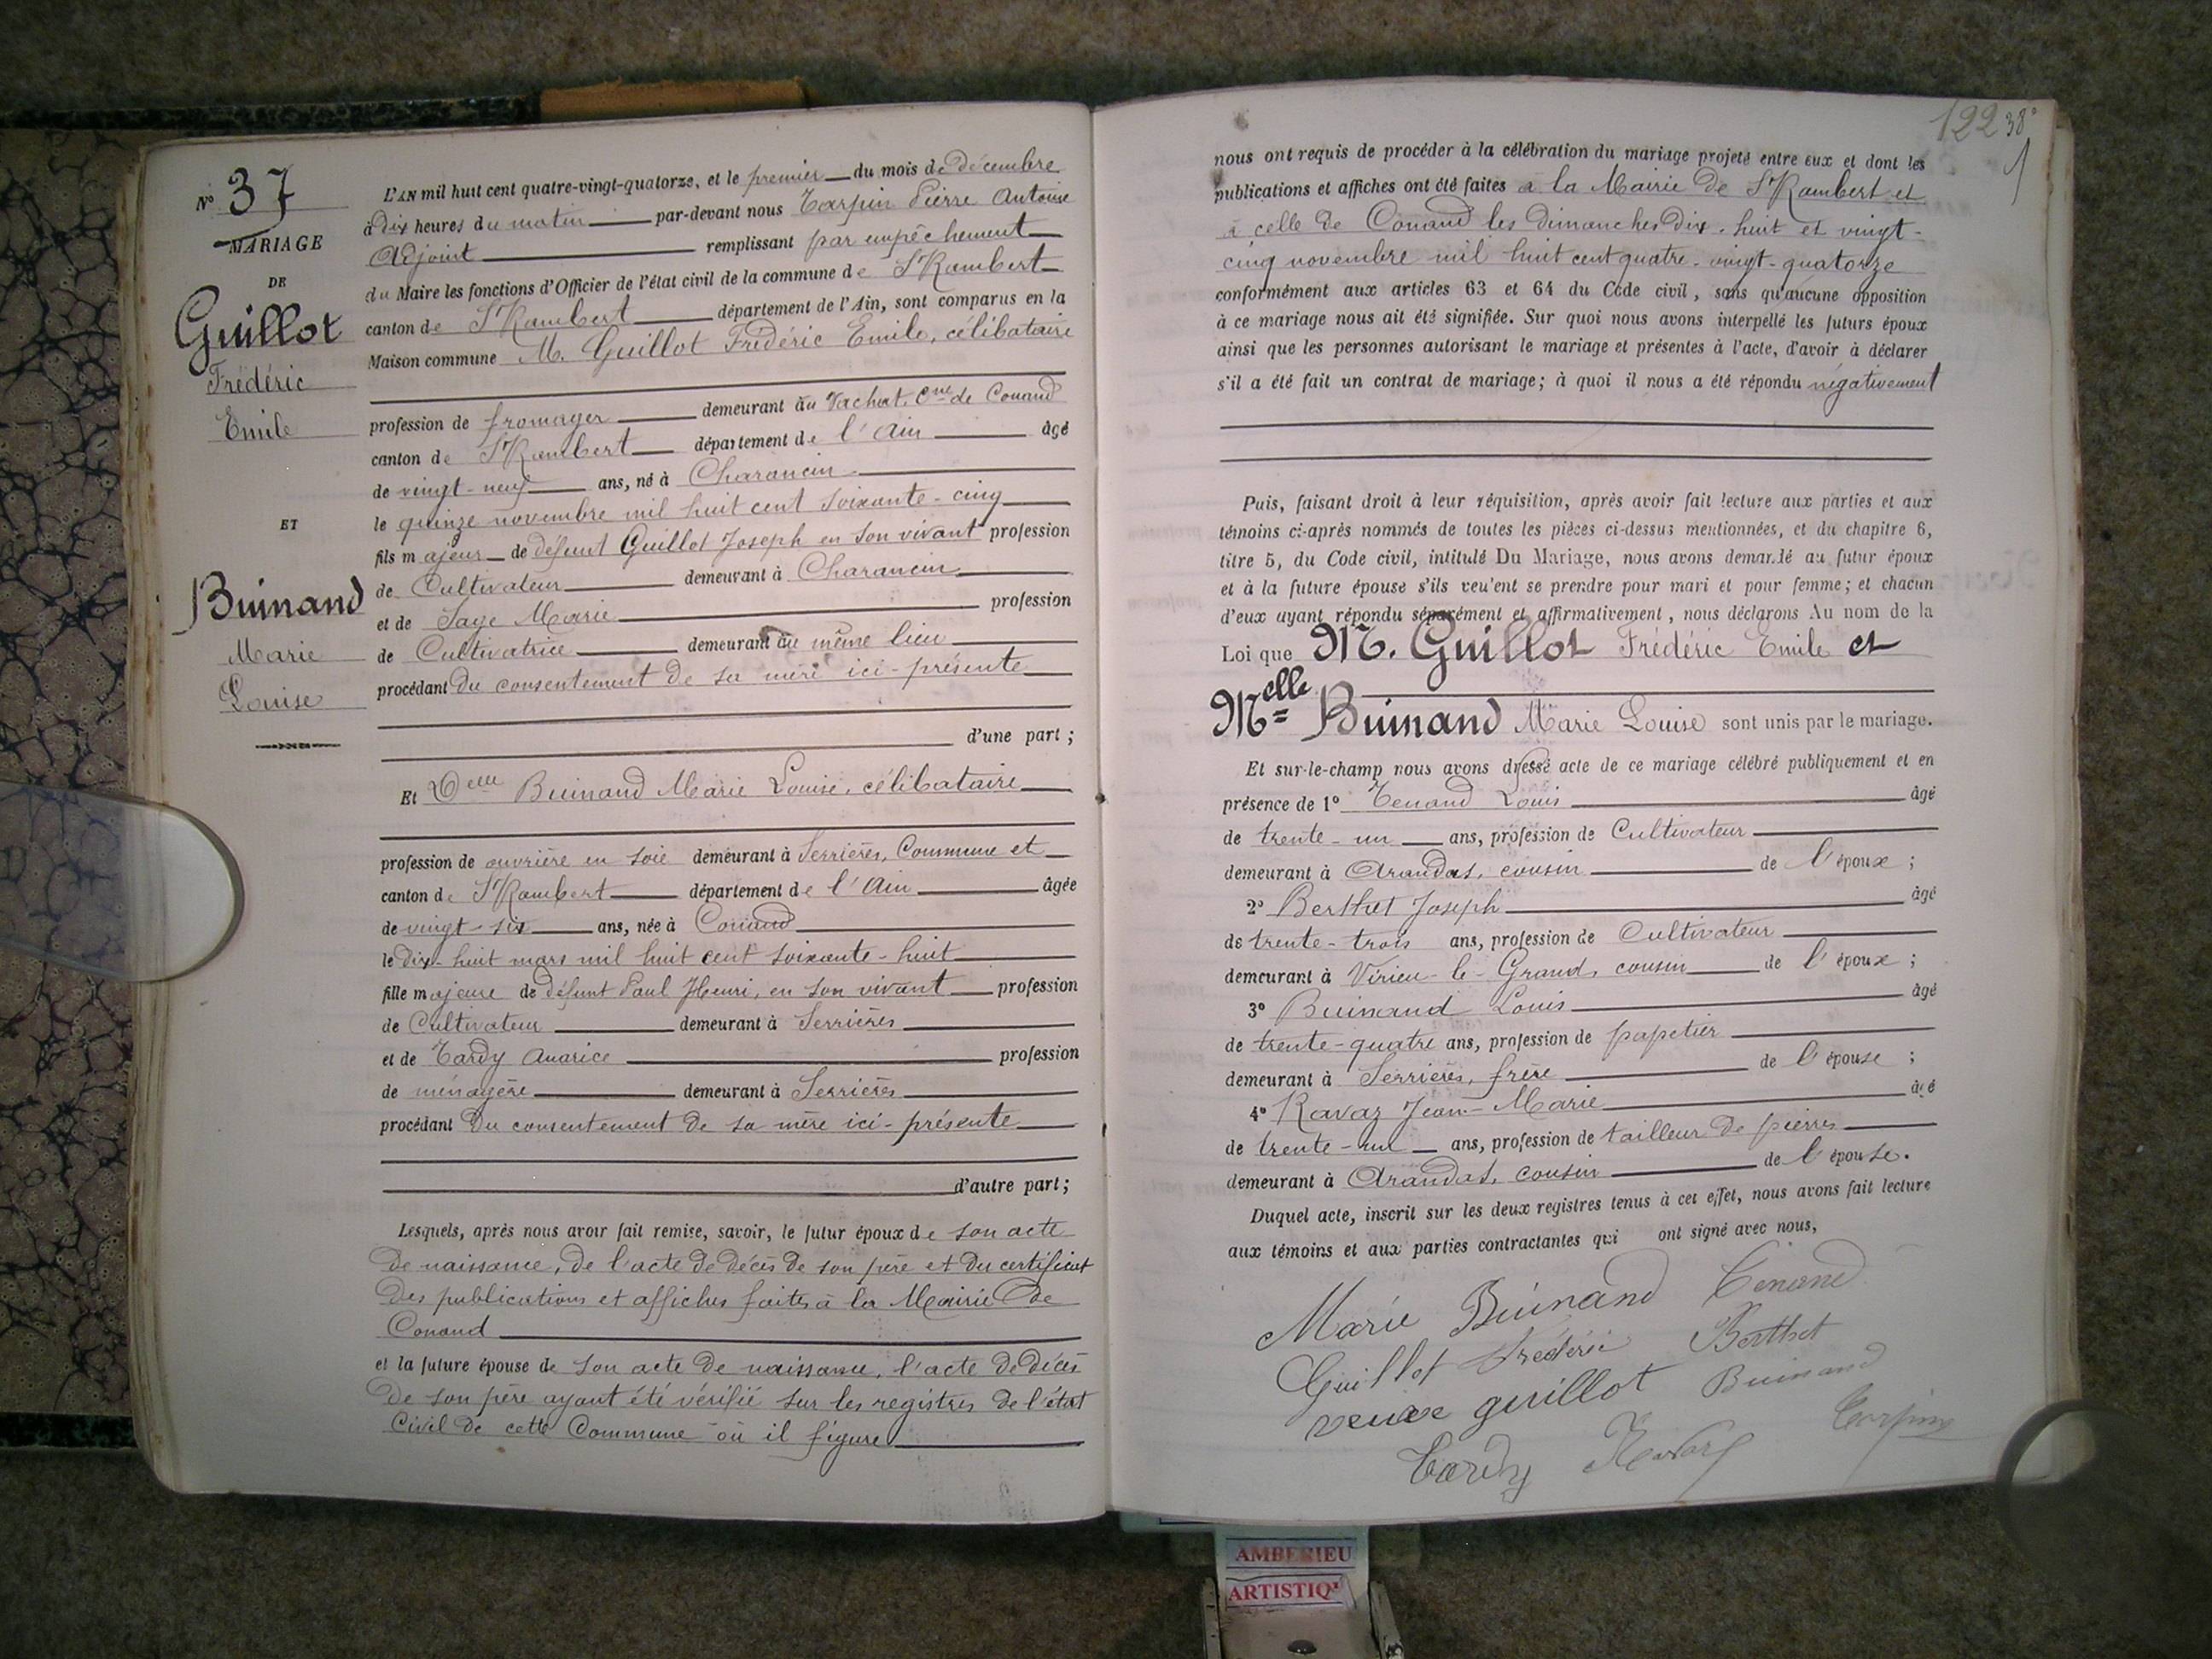 N° 37
MARIAGE
DE
Guillot
Frédéric
Emile
ET
Buinand
Marie
Louise
L'AN mil huit cent quatre-vingt-quatorze, et le premier du mois de décembre
à dix heures du matin par-devant nous Tarpin Pierre Antoine
Adjoint remplissant par empêchement
du Maire les fonctions d'Officier de l'état civil de la commune de St Rambert
canton de St Rambert département de l'Ain, sont comparus en la
Maison commune M. Guillot Frédéric Emile, célibataire
profession de fromager demeurant au Vachat, Cne de Conand
canton de St Rambert département de l'Ain âgé
de vingt-neuf ans, né à Charancin
le quinze novembre mil huit cent soixante-cinq
fils majeur de défunt Guillot Joseph en son vivant profession
de Cultivateur demeurant à Charancin
et de Sage Marie profession
de Cultivatrice demeurant au même lieu
procédant du consentement de sa mère ici-présente
d'une part ;
Et Delle Buinand Marie Louise, célibataire
profession de ouvrière en soie demeurant à Serrières, Commune et
canton de St Rambert département de l'Ain âgée
de vingt-six ans, née à Conand
le dix-huit mars mil huit cent soixante-huit
fille majeure de défunt Paul Henri, en son vivant profession
de Cultivateur demeurant à Serrières
et de Tardy Anarice profession
de ménagère demeurant à Serrières
procédant du consentement de sa mère ici-présente
d'autre part ;
Lesquels, après nous avoir fait remise, savoir, le futur époux de son acte
de naissance, de l'acte de décès de son père et du certificat
des publications et affiches faites à la Mairie de
Conand
et la future épouse de son acte de naissance, l'acte de décès
de son père ayant été vérifié sur les registres de l'état
Civil de cette Commune où il figure
122 38
nous ont requis de procéder à la célébration du mariage projeté entre eux et dont les
publications et affiches ont été faites à la Mairie de St Rambert et
à celle de Conand les dimanches dix-huit et vingt-
cinq novembre mil huit cent quatre-vingt-quatorze
conformément aux articles 63 et 64 du Code civil, sans qu'aucune opposition
à ce mariage nous ait été signifiée. Sur quoi nous avons interpellé les futurs époux
ainsi que les personnes autorisant le mariage et présentes à l'acte, d'avoir à déclarer
s'il a été fait un contrat de mariage ; à quoi il nous a été répondu négativement
Puis, faisant droit à leur réquisition, après avoir fait lecture aux parties et aux
témoins ci-après nommés de toutes les pièces ci-dessus mentionnées, et du chapitre 6,
titre 5, du Code civil, intitulé Du Mariage, nous avons demandé au futur époux
et à la future épouse s'ils veulent se prendre pour mari et pour femme ; et chacun
d'eux ayant répondu séparément et affirmativement, nous déclarons Au nom de la
Loi que M. Guillot Frédéric Emile et
Melle Buinand Marie Louise sont unis par le mariage.
Et sur-le-champ nous avons dressé acte de ce mariage célébré publiquement et en
présence de 1° Tenand Louis âgé
de trente-un ans, profession de Cultivateur
demeurant à Arandas, cousin de l'époux ;
2° Berthet Joseph âgé
de trente-trois ans, profession de Cultivateur
demeurant à Virieu-le-Grand, cousin de l'époux ;
3° Buinand Louis âgé
de trente-quatre ans, profession de papetier
demeurant à Serrières, frère de l'épouse ;
4° Ravaz Jean-Marie âgé
de trente-un ans, profession de tailleur de pierres
demeurant à Arandas, cousin de l'épouse.
Duquel acte, inscrit sur les deux registres tenus à cet effet, nous avons fait lecture
aux témoins et aux parties contractantes qui ont signé avec nous,
Marie Buinand Tenand
Guillot Frédéric Berthet
veuve guillot Buinand
Tardy Ravaz Tarpin
AMBERIEU
ARTISTIQ